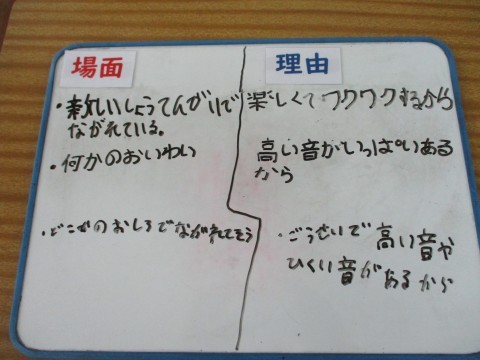 場面
・楽しいしょうてんがいで
ながれている。
・何かのおいわい
・どこかのおしろでながれてそう
理由
楽しくてワクワクするから
高い音がいっぱいある
から
・ごうせいで高い音や
ひくい音があるから